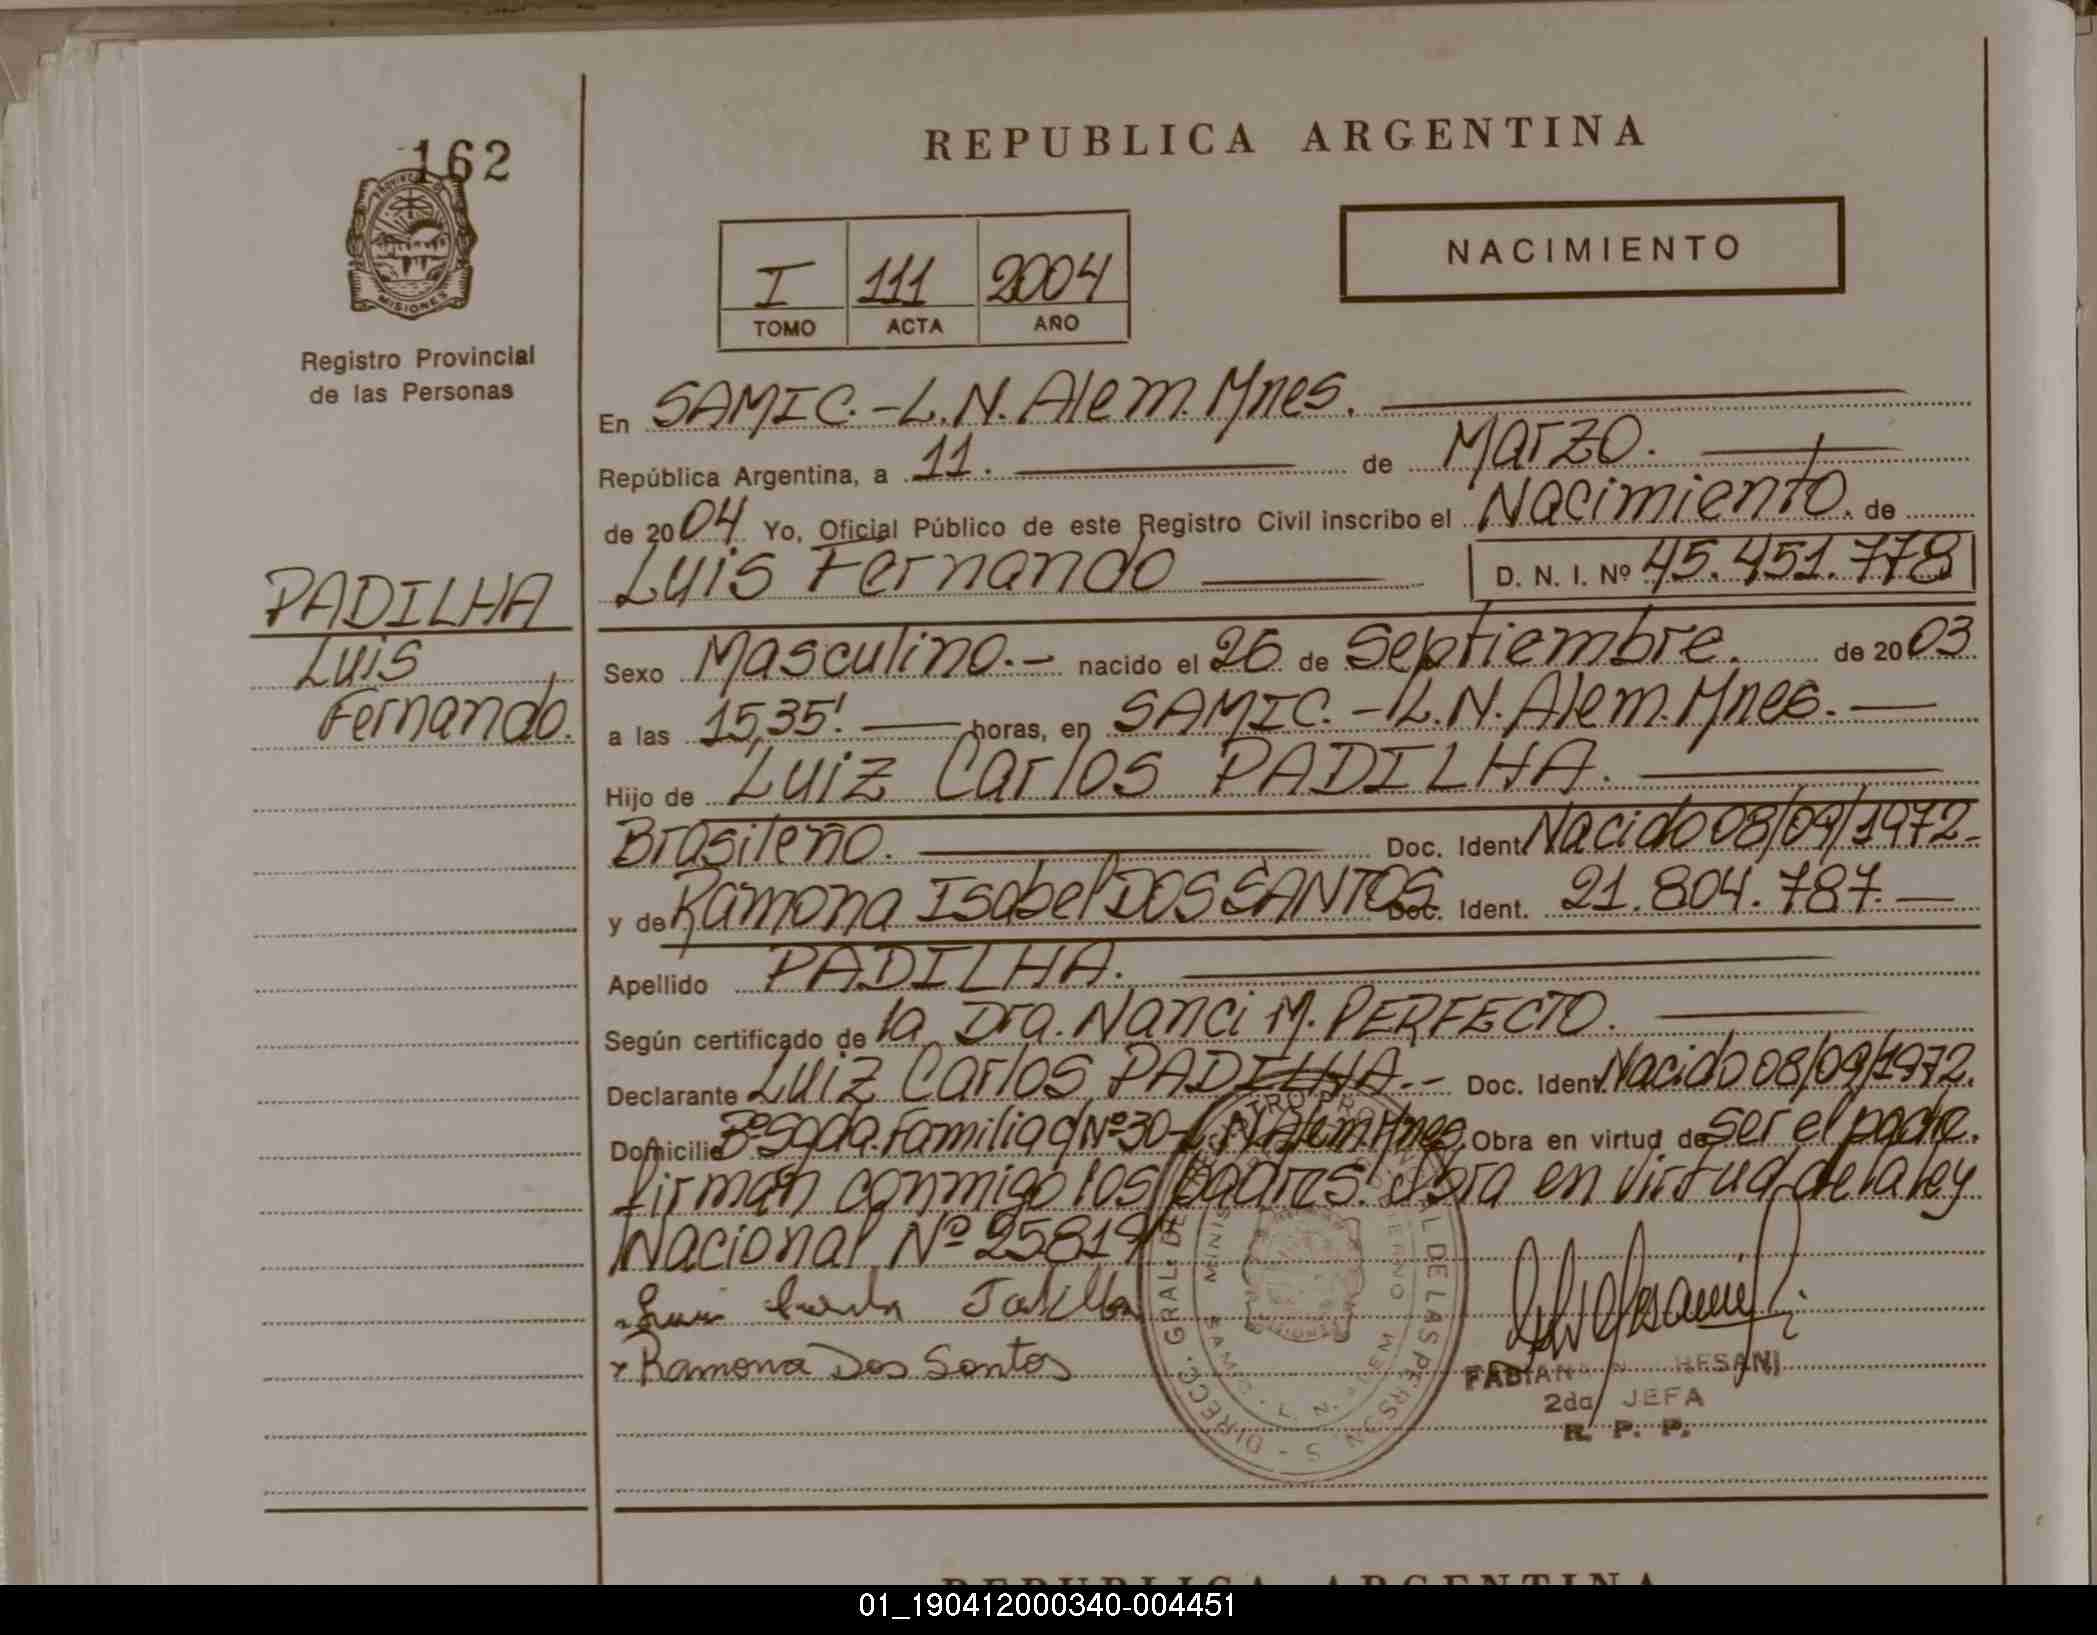 162
REPUBLICA ARGENTINA
NACIMIENTO
I 111 2004
TOMO ACTA AÑO
PROVINCIA DE
MISIONES
Registro Provincial
de las Personas
En SAMIC.-L.N.Alem.Mnes.
República Argentina, a 11. de Marzo.
de 2004 Yo, Oficial Público de este Registro Civil inscribo el Nacimiento. de
Luis Fernando D. N. I. Nº 45.451.778
PADILHA
Luis
Fernando.
Sexo Masculino.- nacido el 26 de Septiembre. de 2003
a las 15,35'. horas, en SAMIC.-L.N.Alem.Mnes.-
Hijo de Luiz Carlos PADILHA.
Brasileño. Doc. Ident. Nacido 08/09/1972.
y de Ramona Isabel DOS SANTOS Doc. Ident. 21.804.787.-
Apellido PADILHA.
Según certificado de la Dra. Nanci M. PERFECTO.
Declarante Luiz Carlos PADILHA.- Doc. Ident. Nacido 08/09/1972.
Domicilio Bº Sgda. Familia Nº 30-L.N.Alem.Mnes. Obra en virtud de ser el padre.
firman conmigo los padres. Obra en virtud de la ley
Nacional Nº 25819
Ramona Dos Santos
DIRECC. GRAL. DE L DE LAS PERSONAS
2da JEFA
R. P. P.
REPUBLICA ARGENTINA
01_190412000340-004451